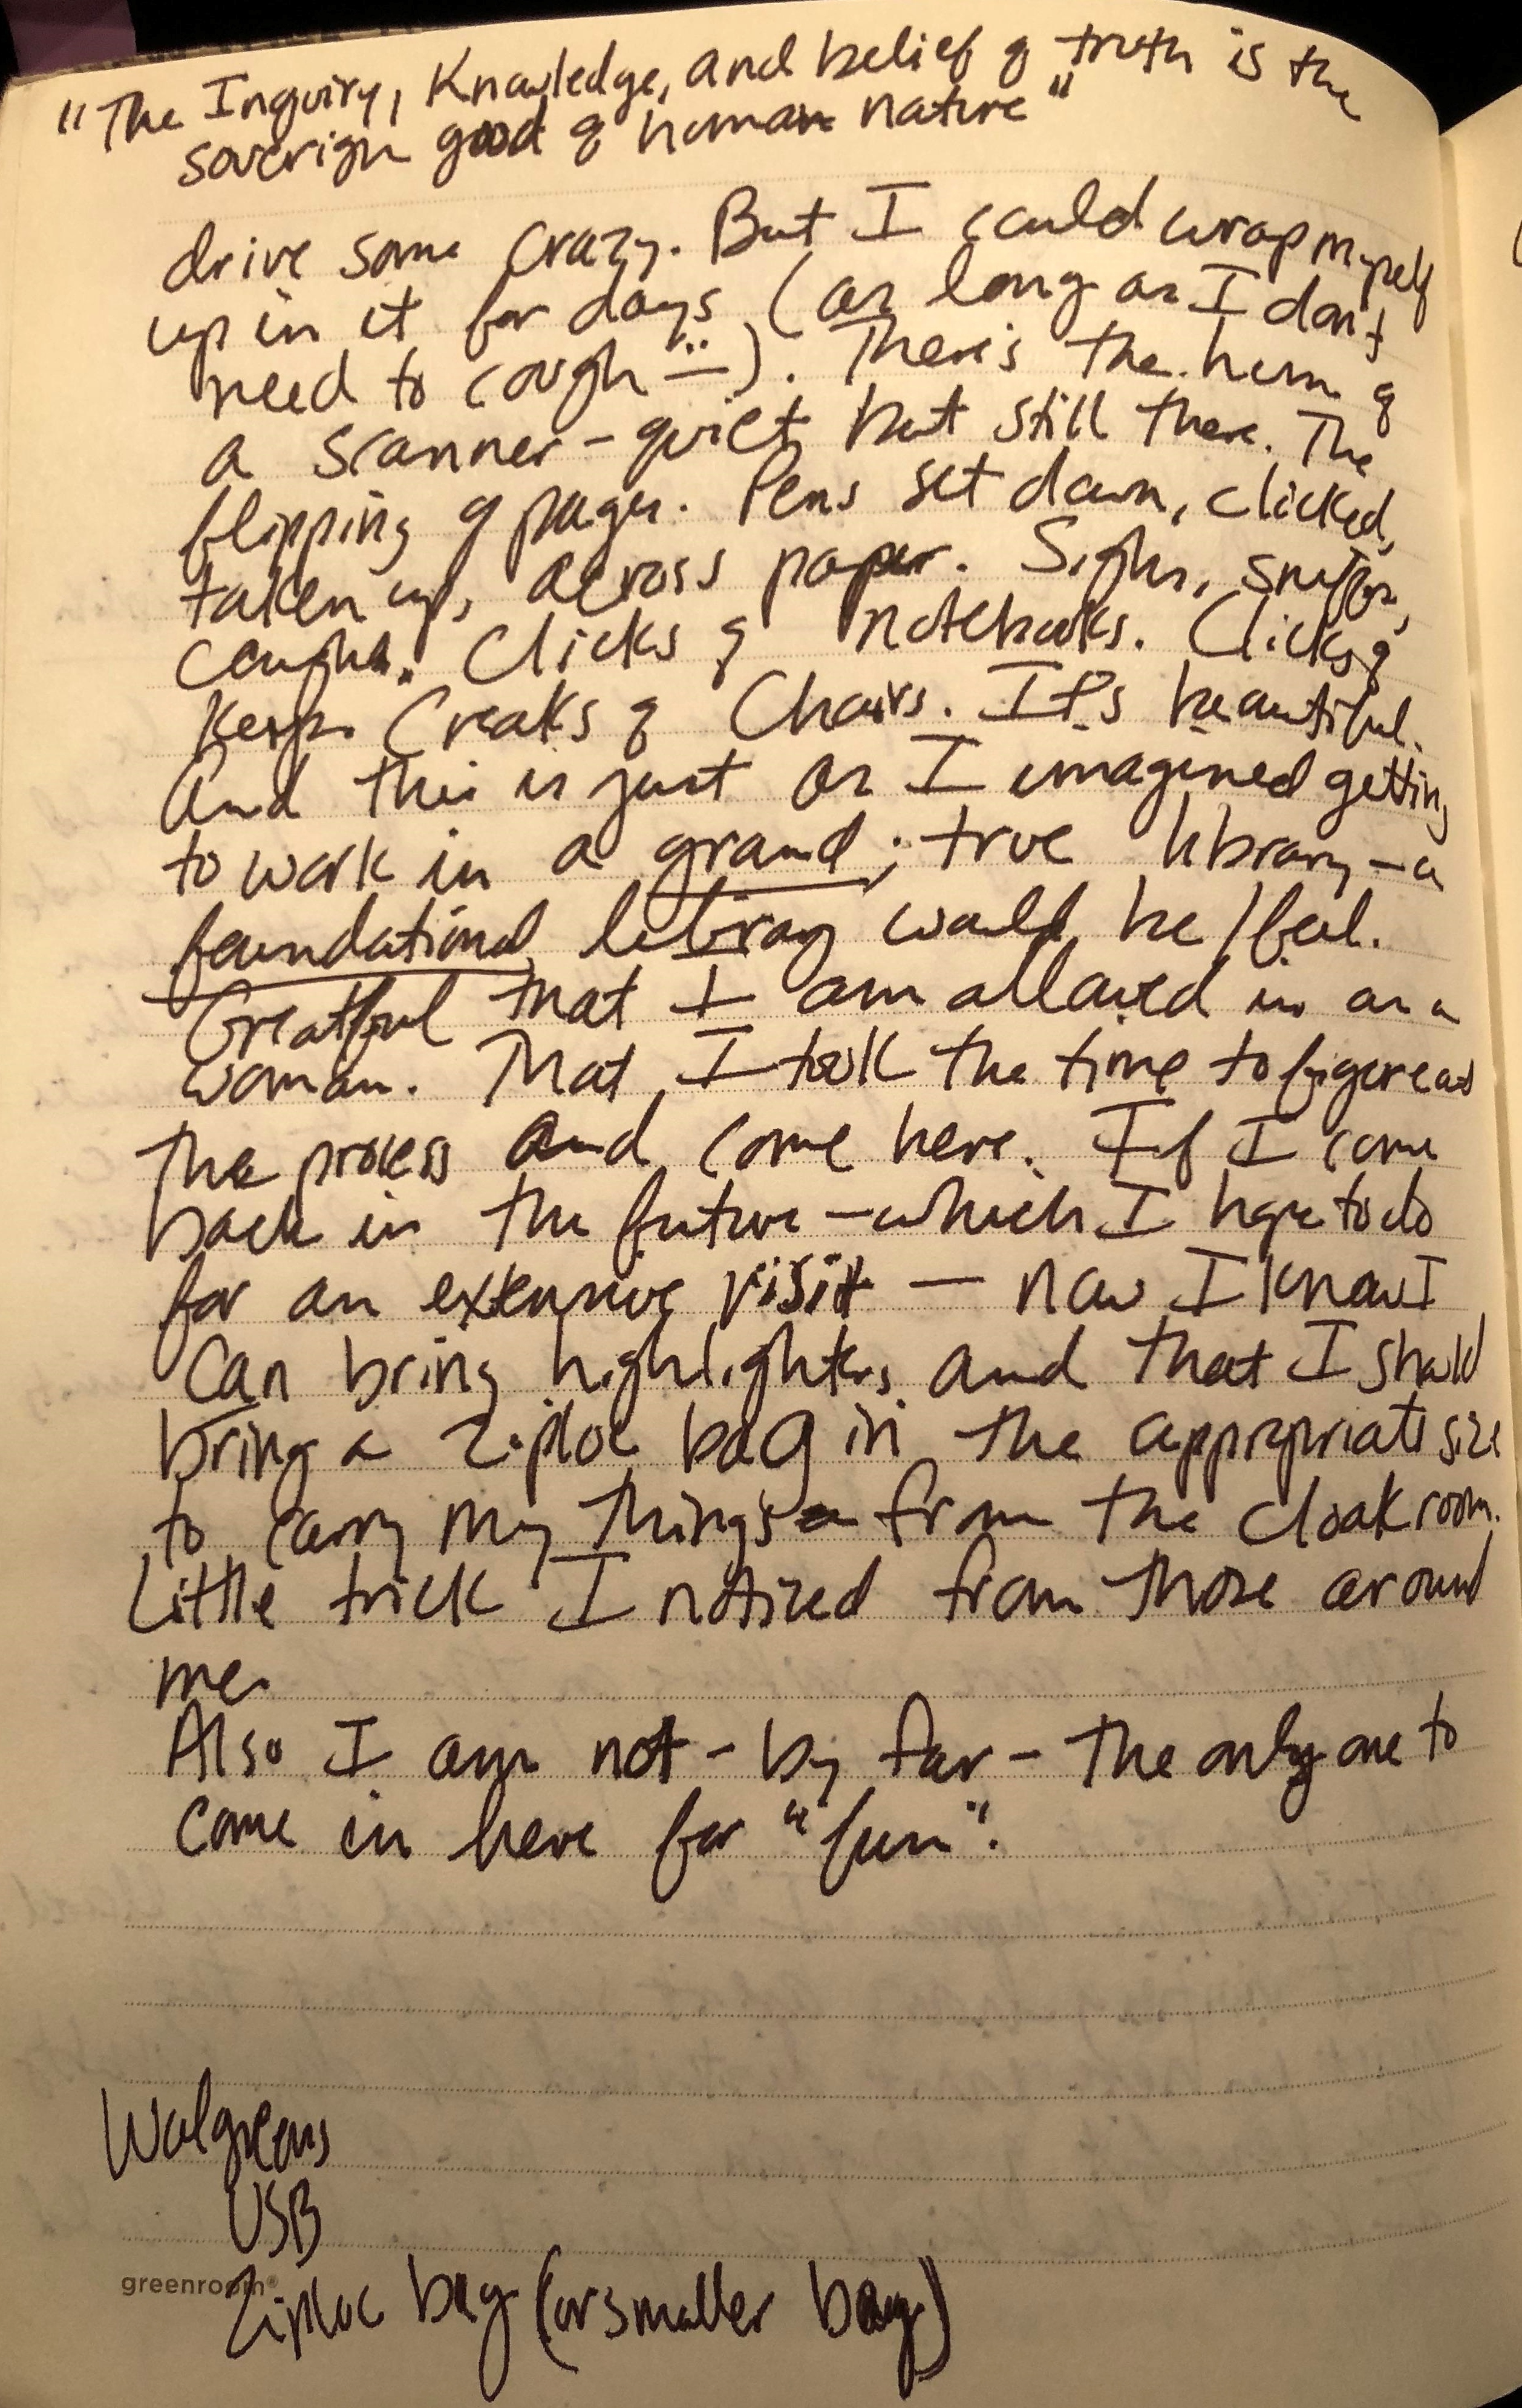 "The Inquiry, Knowledge, and belief of truth is the
soverign good of human nature"
drive some crazy. But I could wrap myself
up in it for days (as long as I don't
need to cough :|). There's the hum of
a scanner - quiet, but still there. The
flipping of pages. Pens set down, clicked,
taken up, across paper. Sighs, sniffs,
coughs. Clicks of notebooks. Clicks of
keys. Creaks of Chairs. It's beautiful.
And this is just as I imagined getting
to work in a grand, true library - a
foundational library would be/feel.
Greatful that I am allowed in as a
woman. That I took the time to figure out
the process and come here. If I come
back in the future - which I hope to do
for an extensive visit - now I know I
can bring highlighters and that I should
bring a Ziploc bag in the appropriate size
to carry my things from the cloakroom.
Little trick I noticed from those around
me.
Also I am not - by far - the only one to
come in here for "fun".
Walgreens
USB
greenroom®
Ziploc bag (or smaller bag)